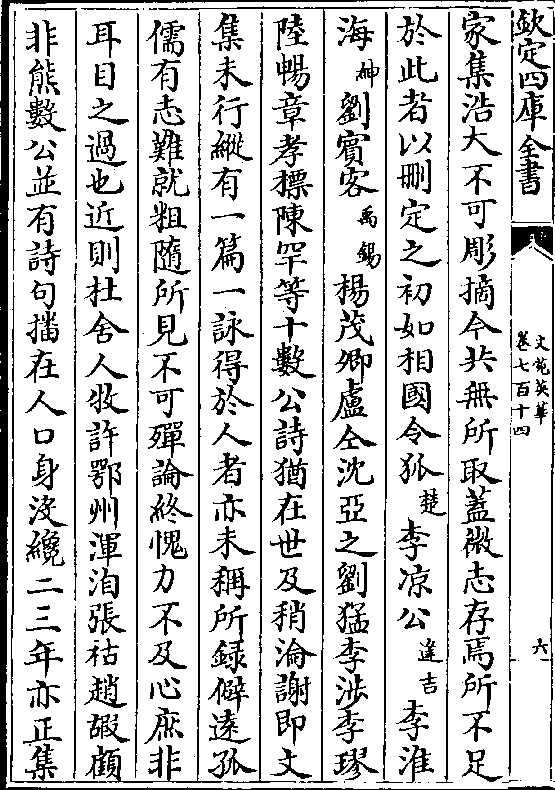 欽定四庫全書
文苑英華
卷七百十四
六
家集浩大不可彫摘今共無所取蓋微志存焉所不足
於此者以刪定之初如相國令狐楚李凉公逢吉李淮
海紳劉賓客禹錫楊茂卿盧仝沈亞之劉猛李涉李璆
陸暢章孝標陳罕等十數公詩猶在世及稍淪謝即文
集未行縱有一篇一詠得於人者亦未稱所録僻遠孤
儒有志難就粗隨所見不可殫論終愧力不及心庶非
耳目之過也近則杜舍人牧許鄂州渾洎張祜趙嘏顧
非熊數公並有詩句播在人口身没纔二三年亦正集